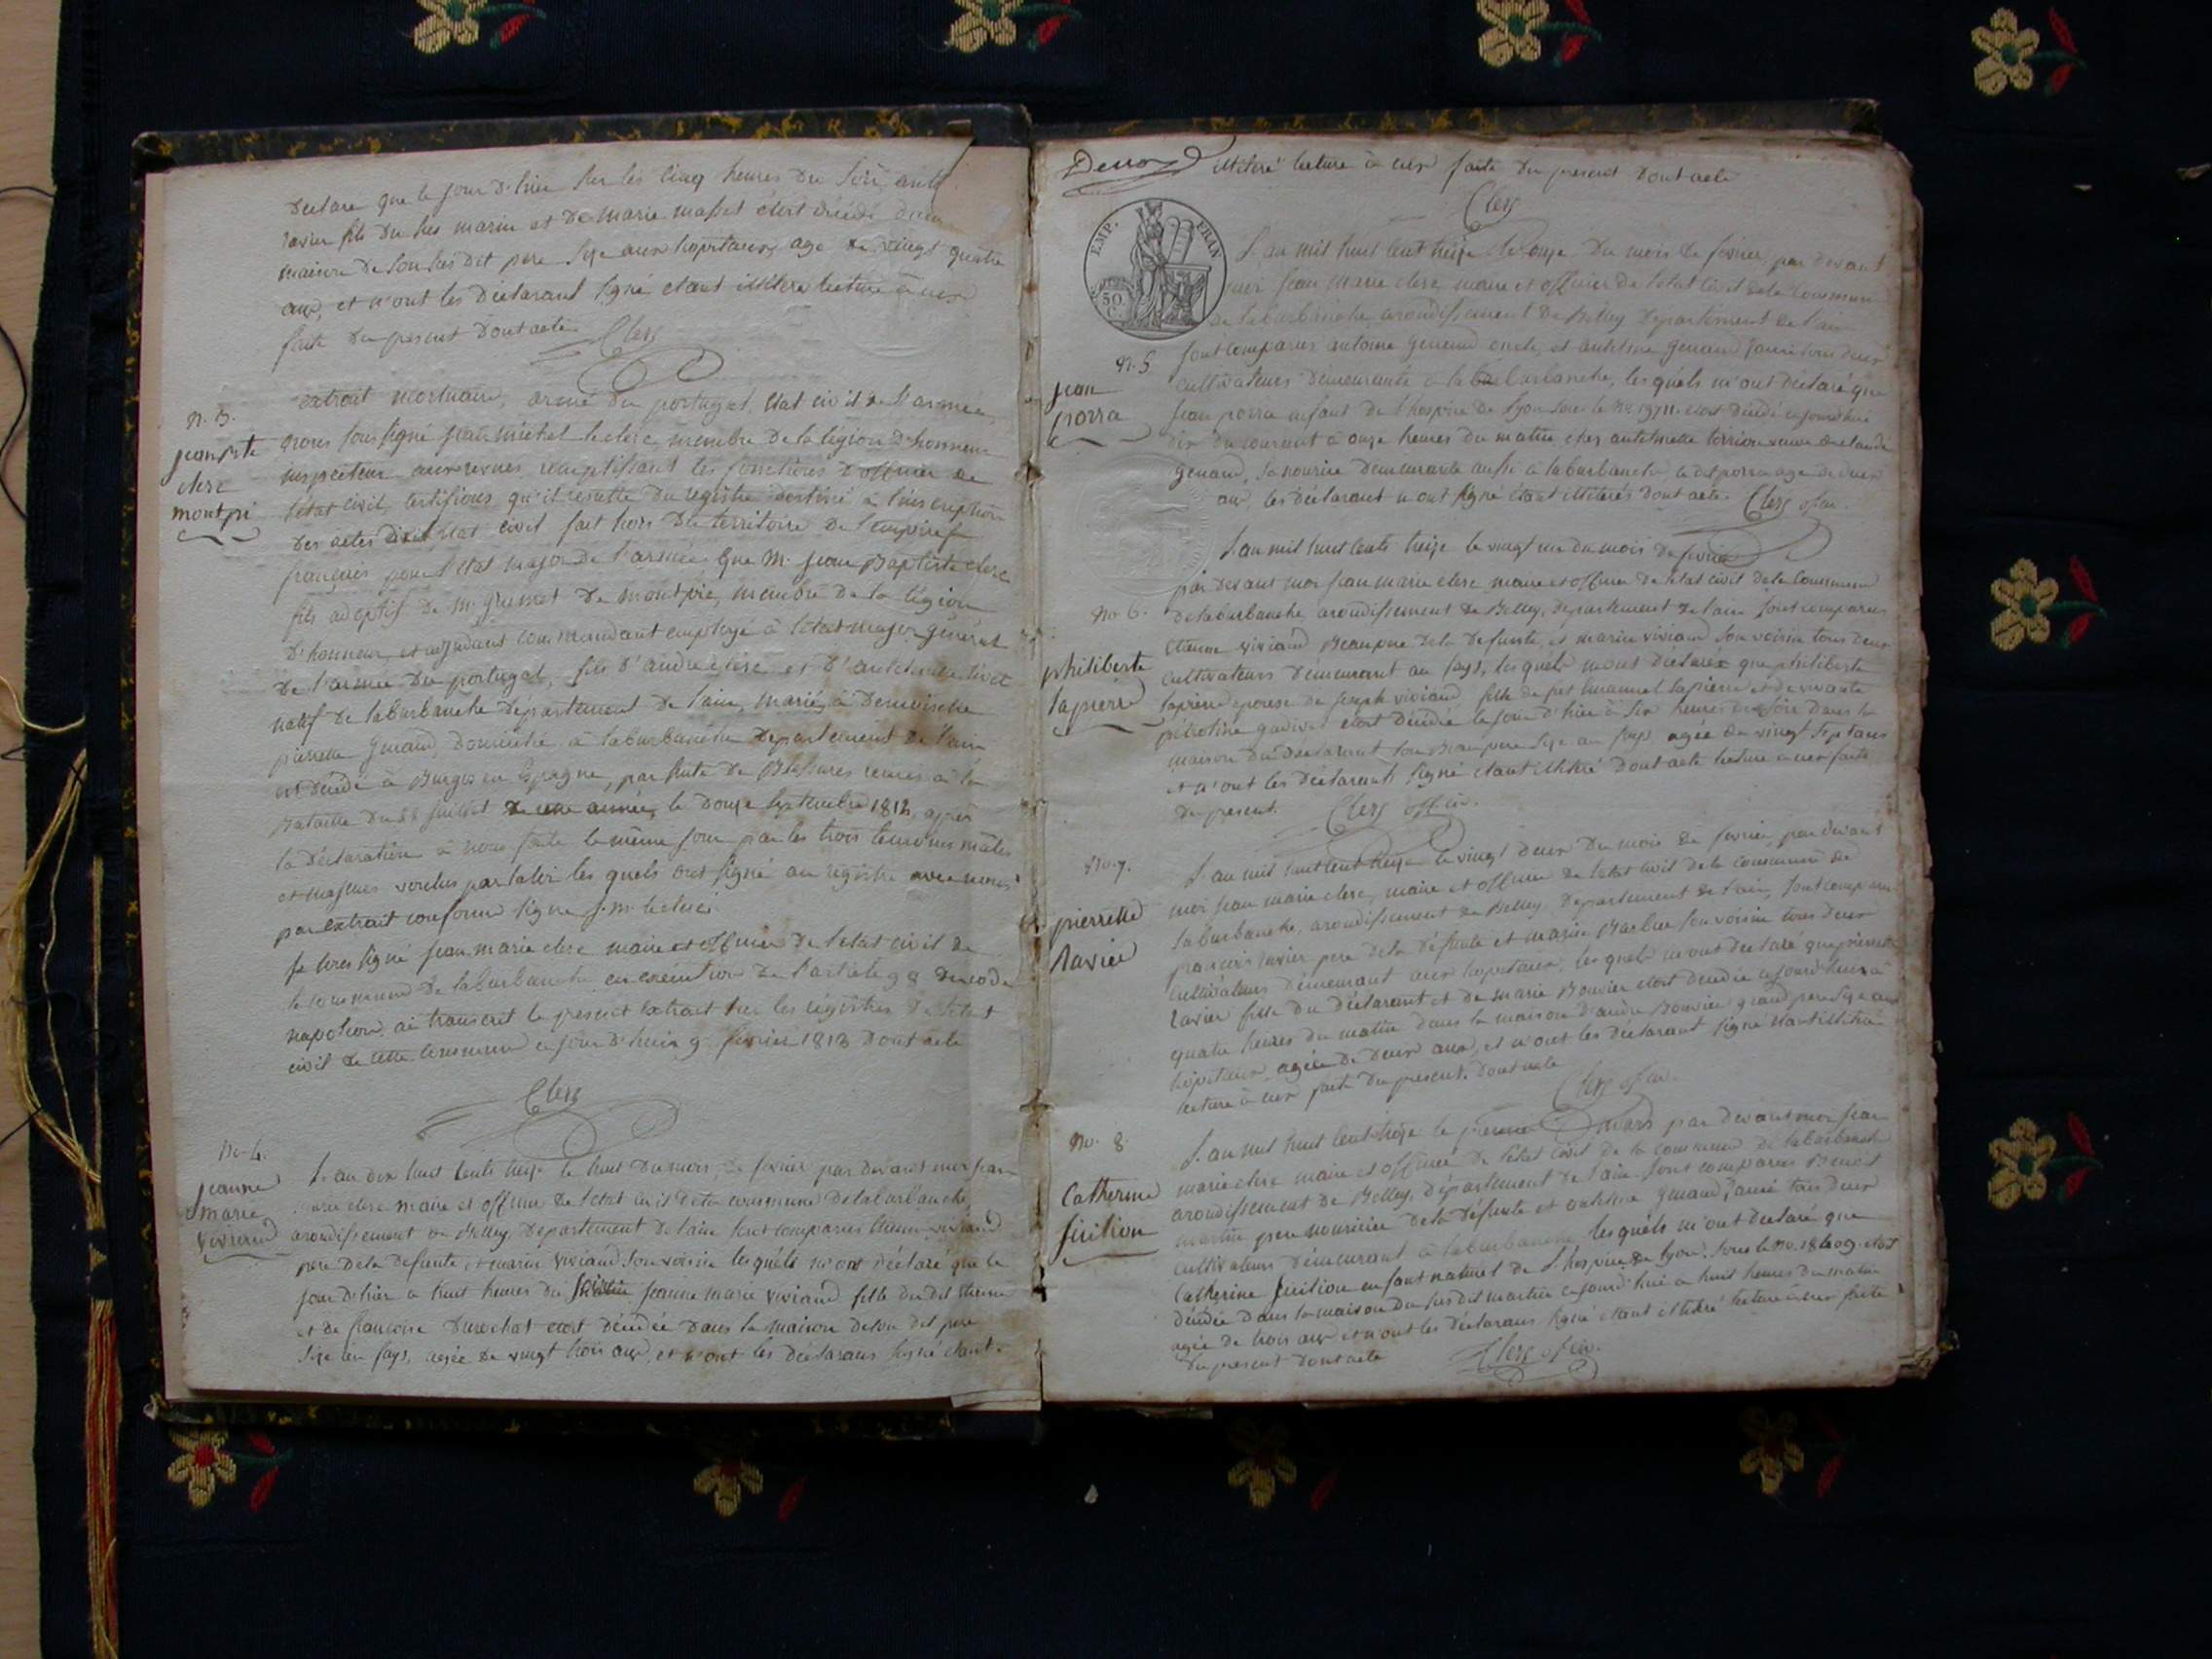 Declare que le jour D'hier sur les cinq heures Du Soir
ravier fils Du Sus marin et De marie masset etoit décédé dans
maison De son Sus Dit pere Size aux hopitaux, age de vingt quatre
ans, et n'ont les Déclarant signé etant illitere lecture à eux
faite Du present Dont acte Clerc
n. 3.
jean bte
clerc
montpié
extrait mortuaire, armé du portugal, Etat civil de l'armée,
nous soussigné jean michel leclerc membre de la légion d'honneur
inspecteur aux revues remplissant les fonctions D'officier de
l'état civil, certifions qu'il résulte du registre destiné à l'inscription
des actes de l'état civil fait hors du territoire de l'empire
français pour l'état major de l'armée Que Mr jean Baptiste clerc
fils adoptif de Mr de montpié, membre de la légion
D'honneur, et adjudant commandant employé à l'état major général
De l'armée Du portugal, fils d'andré clerc et d'anthelmette
natif de laburbanche Département de l'ain, marié à Demoiselle
pierrette Genand, Domicilié à laburbanche Département de l'ain
est décédé à Burgos en Espagne, par suite de Blessures reçues à la
Bataille Du 22 juillet de année, le Douze septembre 1812, après
la déclaration à nous faite le même jour par les trois témoins mâles
et majeurs voulus par la loi les quels ont signé au registre avec nous
par extrait conforme signé j. m. leclerc
je soussigné jean marie clerc maire et officier de l'état civil de
la commune De laburbanche en exécution de l'article 98 du code
napoleon ai transcrit le present extrait sur les régistres de l'état
civil de cette commune ce jour d'huis 9 fevrier 1813 Dont acte
Clerc
No. 4.
jeanne
marie
viviand
L'an Dix huit cents treize le huit Du mois de fevrier par devant moi jean
marie clerc maire et officier de l'état civil De la commune De laburbanche
arondissement De Belley Departement De l'ain sont comparus Etienne viviand
pere De la Défunte, et marin viviand son voisin les quels m'ont Déclaré que le
jour D'hier a huit heures du jeanne marie viviand fille du dit Etienne
et de francoise Durochat etoit décédée Dans la maison De son dit pere
Size au fays, agée de vingt trois ans, et n'ont les Déclarans signé etant
illiteré lecture à eux faite Du present Dont acte
Clerc
EMP. FRAN
50
C.
L'an mil huit cent treize le onze Du mois de fevrier, par devant
moi jean marie clerc maire et officier de l'état civil de la commune
de laburbanche arondissement De Belley Departement de l'ain
n. 5
jean
porra
sont comparus antoine Genand oncle, et anthelme Genand tous deux
cultivateurs Démeurants à laburbanche, les quels m'ont déclaré que
jean porra enfant de l'hospice De Lyon sous le No. 19711. etoit décédé
dix du courant à onze heures du matin chez anthelmette veuve de claude
Genand, sa nourice Demeurante aussi à laburbanche, le dit porra age de deux
ans, les déclarant n'ont signé étant illiterés dont acte. Clerc of. civ.
L'an mil huit cents treize le vingt un du mois De fevrier
par devant moi jean marie clerc maire et officier de l'état civil de la Commune
No. 6.
philiberte
lapierre
De laburbanche, arondissement De Belley, departement De l'ain sont comparus
Etienne viviand Beaupere De la Defunte, et marin viviand son voisin tous deux
cultivateurs Démeurant au fays, les quels m'ont déclaré que philiberte
lapierre epouse de joseph viviand fille de feu Emanuel lapierre et de vivante
pétroline etoit Décédée le jour d'hier à six heures du soir Dans la
maison Du Déclarant son Beaupere Size au fays agée de vingt sept ans
et n'ont les Déclarants signé etant illitéré Dont acte lecture a eux faite
Du present. Clerc off. civ.
No. 7.
pierrette
ravier
L'an mil huit cent treize le vingt deux Du mois de fevrier, par devant
moi jean marie clerc, maire et officier de l'état civil de la commune de
laburbanche, arondissement De Belley, Departement de l'ain, sont comparus
francois ravier pere De la Défunte et marin Barbier son voisin tous deux
cultivateurs Démeurant aux hopitaux, les quels m'ont déclaré que pierrette
ravier fille Du Déclarant et De marie Bouvier etoit décédée ce jourd'huis à
quatre heures du matin dans la maison D'andré Bouvier grand pere Size aux
hopitaux, agée De Deux ans, et n'ont les declarant signé etant illitéré
lecture à eux faite Du present. Dont acte Clerc of. civ.
No. 8.
Catherine
fiction
L'an mil huit cent treize le premier mars par devant moi jean
marie clerc maire et officier De l'état civil de la commune De laburbanche
arondissement de Belley, département de l'ain. sont comparus Benoit
martin pere nouricier De la Défunte et anthelme Genand tous deux
cultivateurs Démeurant à laburbanche les quels m'ont Declaré que
Catherine fiction enfant naturel De l'hospice De Lyon. sous le No. 18409. etoit
décédée Dans la maison Du Sus dit martin ce jourd'hui a huit heures Du matin
agée De trois ans, et n'ont les déclarans signé etant illitéré lecture a eux faite
Du present Dont acte Clerc of. civ.